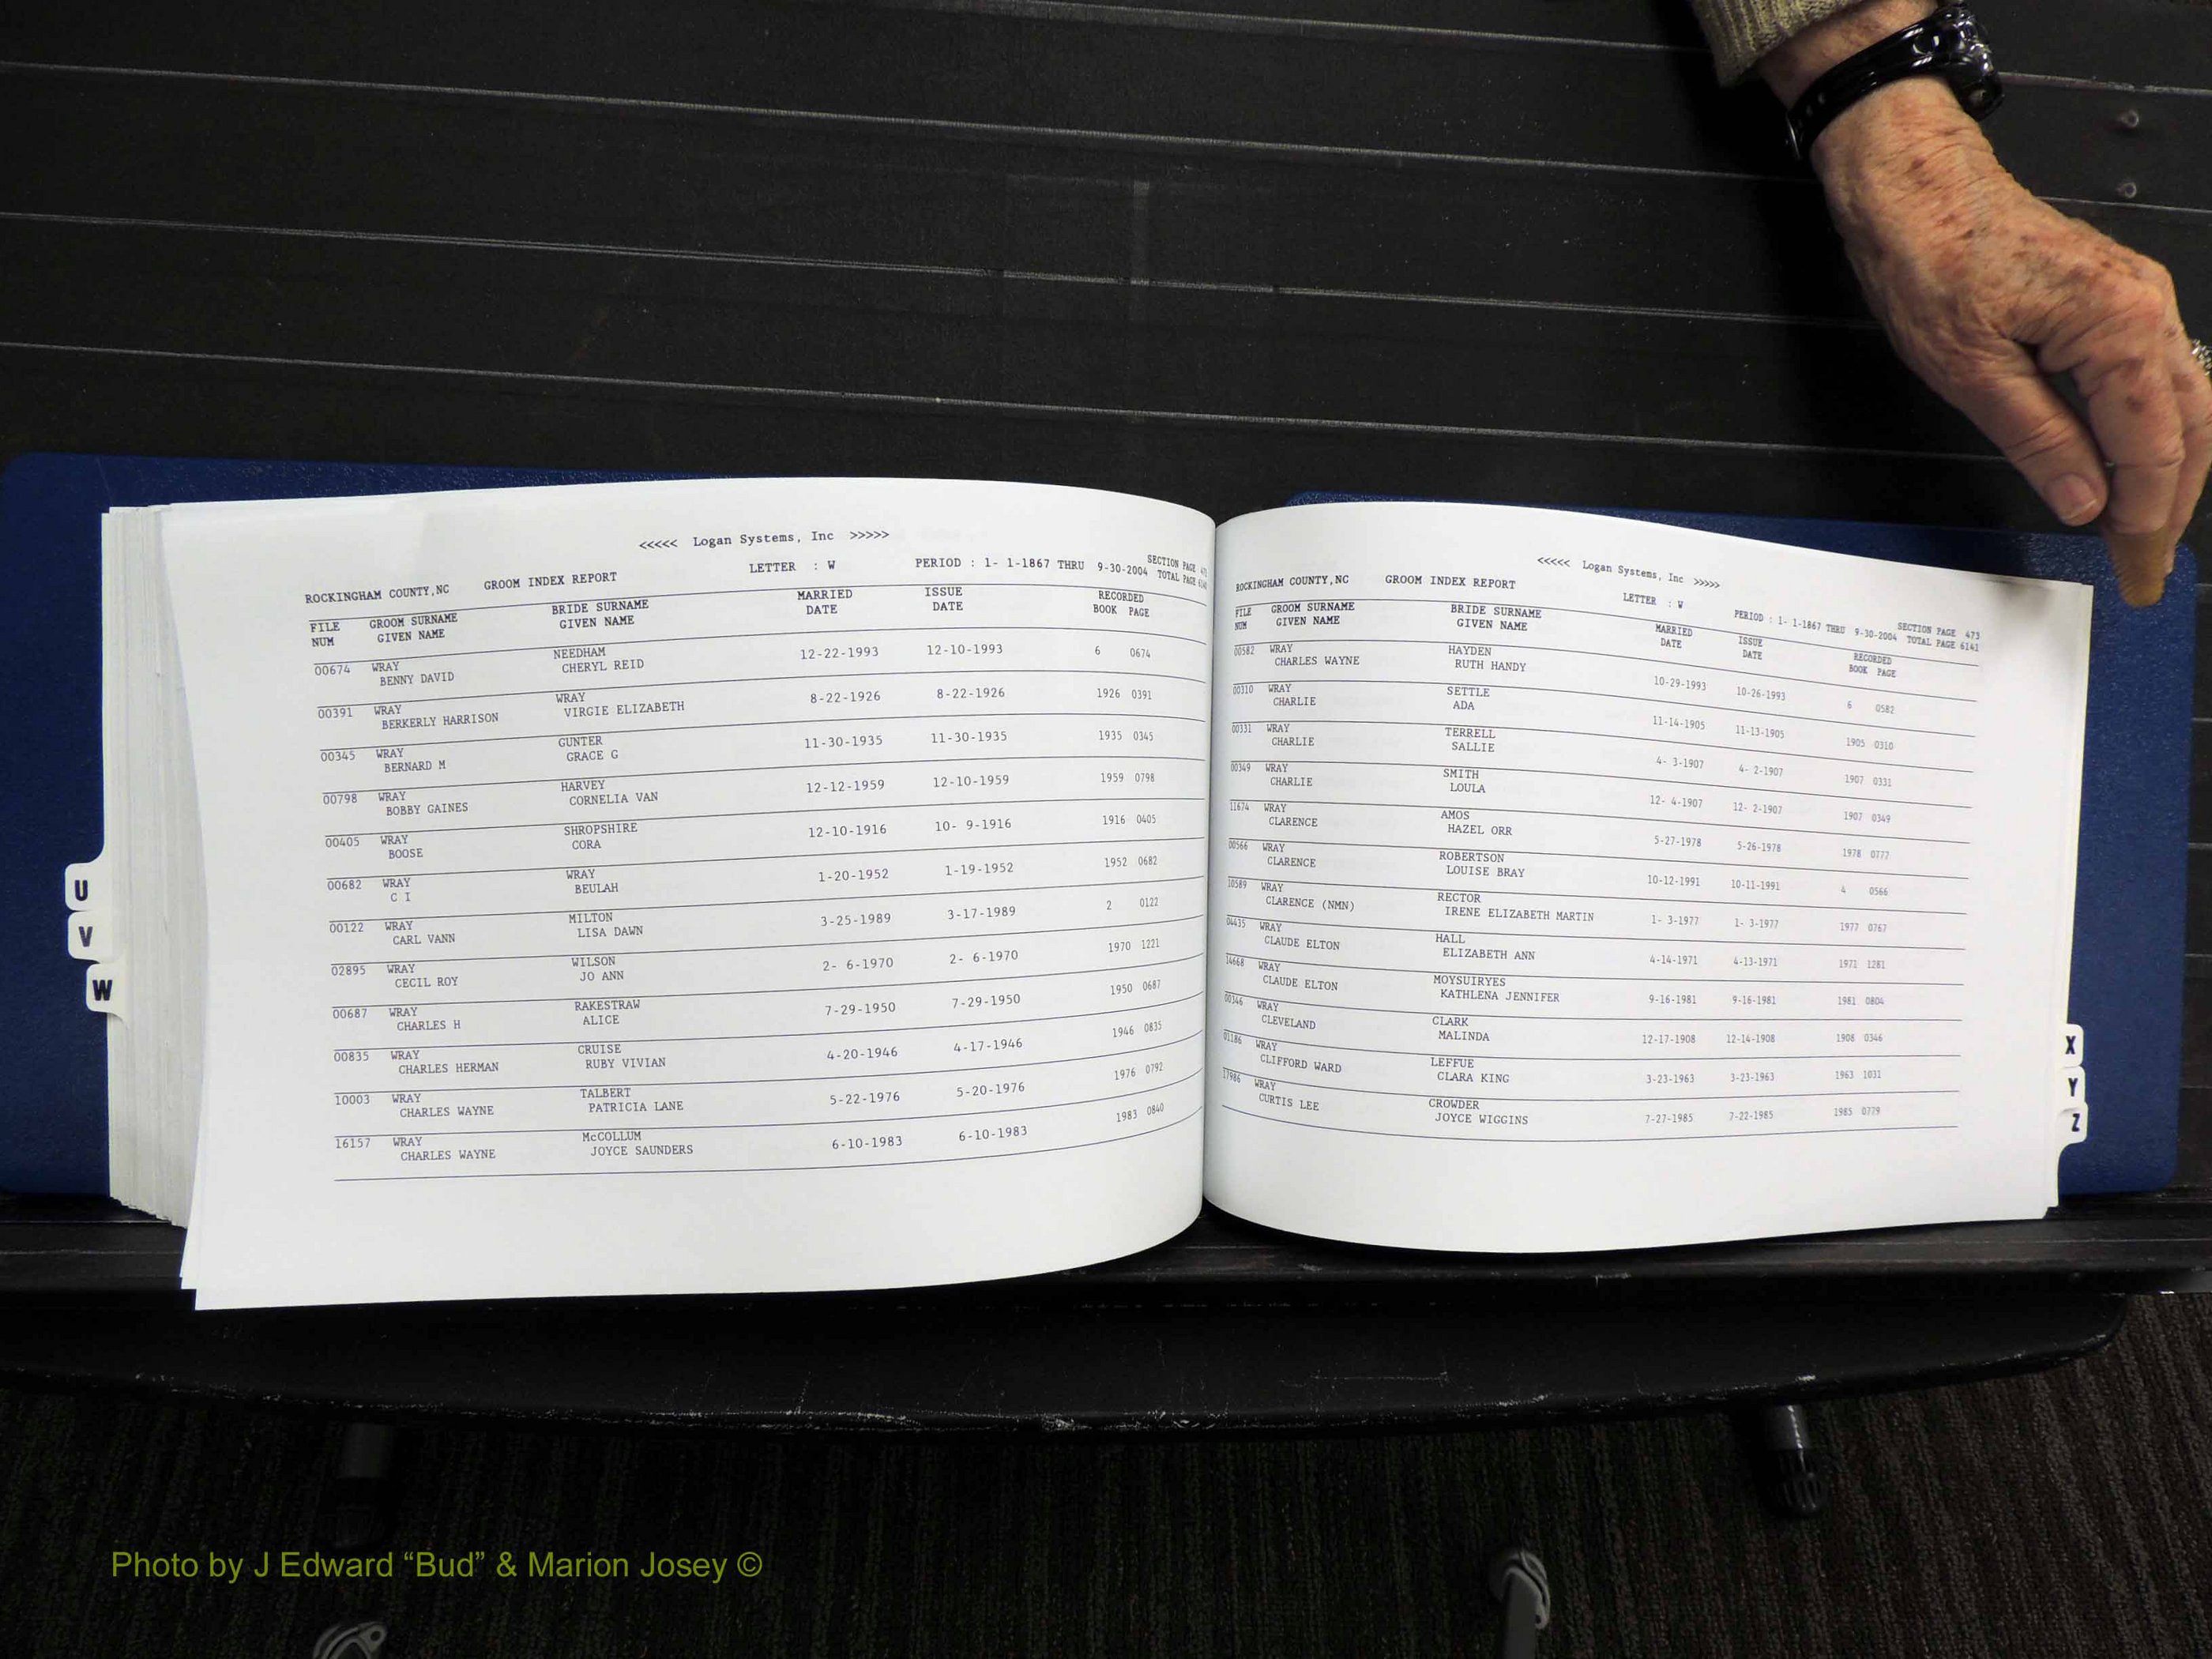 <<<<< Logan Systems, Inc >>>>>
ROCKINGHAM COUNTY,NC GROOM INDEX REPORT LETTER : W PERIOD : 1- 1-1867 THRU 9-30-2004 SECTION PAGE
TOTAL PAGE
FILE GROOM SURNAME BRIDE SURNAME MARRIED ISSUE RECORDED
NUM GIVEN NAME GIVEN NAME DATE DATE BOOK PAGE
00674 WRAY NEEDHAM 12-22-1993 12-10-1993 6 0674
BENNY DAVID CHERYL REID
00391 WRAY WRAY 8-22-1926 8-22-1926 1926 0391
BERKERLY HARRISON VIRGIE ELIZABETH
00345 WRAY GUNTER 11-30-1935 11-30-1935 1935 0345
BERNARD M GRACE G
00798 WRAY HARVEY 12-12-1959 12-10-1959 1959 0798
BOBBY GAINES CORNELIA VAN
00405 WRAY SHROPSHIRE 12-10-1916 10- 9-1916 1916 0405
BOOSE CORA
00682 WRAY WRAY 1-20-1952 1-19-1952 1952 0682
C I BEULAH
00122 WRAY MILTON 3-25-1989 3-17-1989 2 0122
CARL VANN LISA DAWN
02895 WRAY WILSON 2- 6-1970 2- 6-1970 1970 1221
CECIL ROY JO ANN
00687 WRAY RAKESTRAW 7-29-1950 7-29-1950 1950 0687
CHARLES H ALICE
00835 WRAY CRUISE 4-20-1946 4-17-1946 1946 0835
CHARLES HERMAN RUBY VIVIAN
10003 WRAY TALBERT 5-22-1976 5-20-1976 1976 0792
CHARLES WAYNE PATRICIA LANE
16157 WRAY McCOLLUM 6-10-1983 6-10-1983 1983 0840
CHARLES WAYNE JOYCE SAUNDERS
U
V
W
<<<<< Logan Systems, Inc >>>>>
ROCKINGHAM COUNTY,NC GROOM INDEX REPORT LETTER : W PERIOD : 1- 1-1867 THRU 9-30-2004 SECTION PAGE 473
TOTAL PAGE 6141
FILE GROOM SURNAME BRIDE SURNAME MARRIED ISSUE RECORDED
NUM GIVEN NAME GIVEN NAME DATE DATE BOOK PAGE
00582 WRAY HAYDEN 10-29-1993 10-26-1993 6 0582
CHARLES WAYNE RUTH HANDY
00310 WRAY SETTLE 11-14-1905 11-13-1905 1905 0310
CHARLIE ADA
00331 WRAY TERRELL 4- 3-1907 4- 2-1907 1907 0331
CHARLIE SALLIE
00349 WRAY SMITH 12- 4-1907 12- 2-1907 1907 0349
CHARLIE LOULA
11674 WRAY AMOS 5-27-1978 5-26-1978 1978 0777
CLARENCE HAZEL ORR
00566 WRAY ROBERTSON 10-12-1991 10-11-1991 4 0566
CLARENCE LOUISE BRAY
10589 WRAY RECTOR 1- 3-1977 1- 3-1977 1977 0767
CLARENCE (NMN) IRENE ELIZABETH MARTIN
04435 WRAY HALL 4-14-1971 4-13-1971 1971 1281
CLAUDE ELTON ELIZABETH ANN
14668 WRAY MOYSUIRYES 9-16-1981 9-16-1981 1981 0804
CLAUDE ELTON KATHLENA JENNIFER
00346 WRAY CLARK 12-17-1908 12-14-1908 1908 0346
CLEVELAND MALINDA
01186 WRAY LEFFUE 3-23-1963 3-23-1963 1963 1031
CLIFFORD WARD CLARA KING
17986 WRAY CROWDER 7-27-1985 7-22-1985 1985 0779
CURTIS LEE JOYCE WIGGINS
X
Y
Z
Photo by J Edward “Bud” & Marion Josey ©